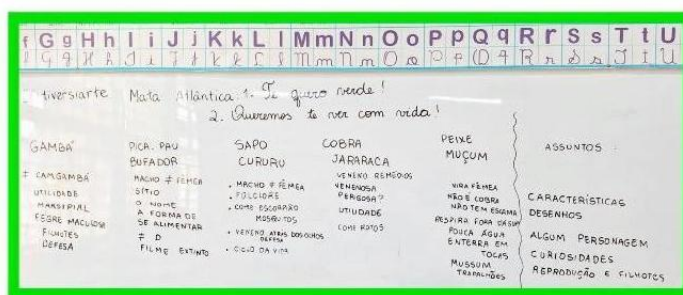 f G g H h I i J j K k L l M m N n O o P p Q q R r S s T t U
f G g H h I i J j K k L l M m N n O o P p Q q R r S s T t U
tiversiarte Mata Atlântica: 1. Te quero verde!
2. Queremos te ver com vida!
GAMBÁ
≠ CANGAMBÁ
UTILIDADE
MARSUPIAL
FEBRE MACULOSA
FILHOTES
DEFESA
PICA. PAU
BUFADOR
MACHO ≠ FÊMEA
SÍTIO
O NOME
A FORMA DE
SE ALIMENTAR
≠ D
FILME EXTINTO
SAPO
CURURU
. MACHO ≠ FÊMEA
. FOLCLORE
. COME ESCORPIÃO
MOSQUITOS
. VENENO ATRÁS DOS OLHOS
DEFESA
. CICLO DA VIDA
COBRA
JARARACA
VENENO REMÉDIOS
VENENOSA
PERIGOSA?
UTILIDADE
COME RATOS
PEIXE
MUÇUM
VIRA FÊMEA
NÃO É COBRA
NÃO TEM ESCAMA
RESPIRA FORA D'ÁGUA
POUCA ÁGUA
ENTERRA EM
TOCAS
MUSSUM
TRAPALHÕES
ASSUNTOS
CARACTERÍSTICAS
DESENHOS
ALGUM PERSONAGEM
CURIOSIDADES
REPRODUÇÃO E FILHOTES